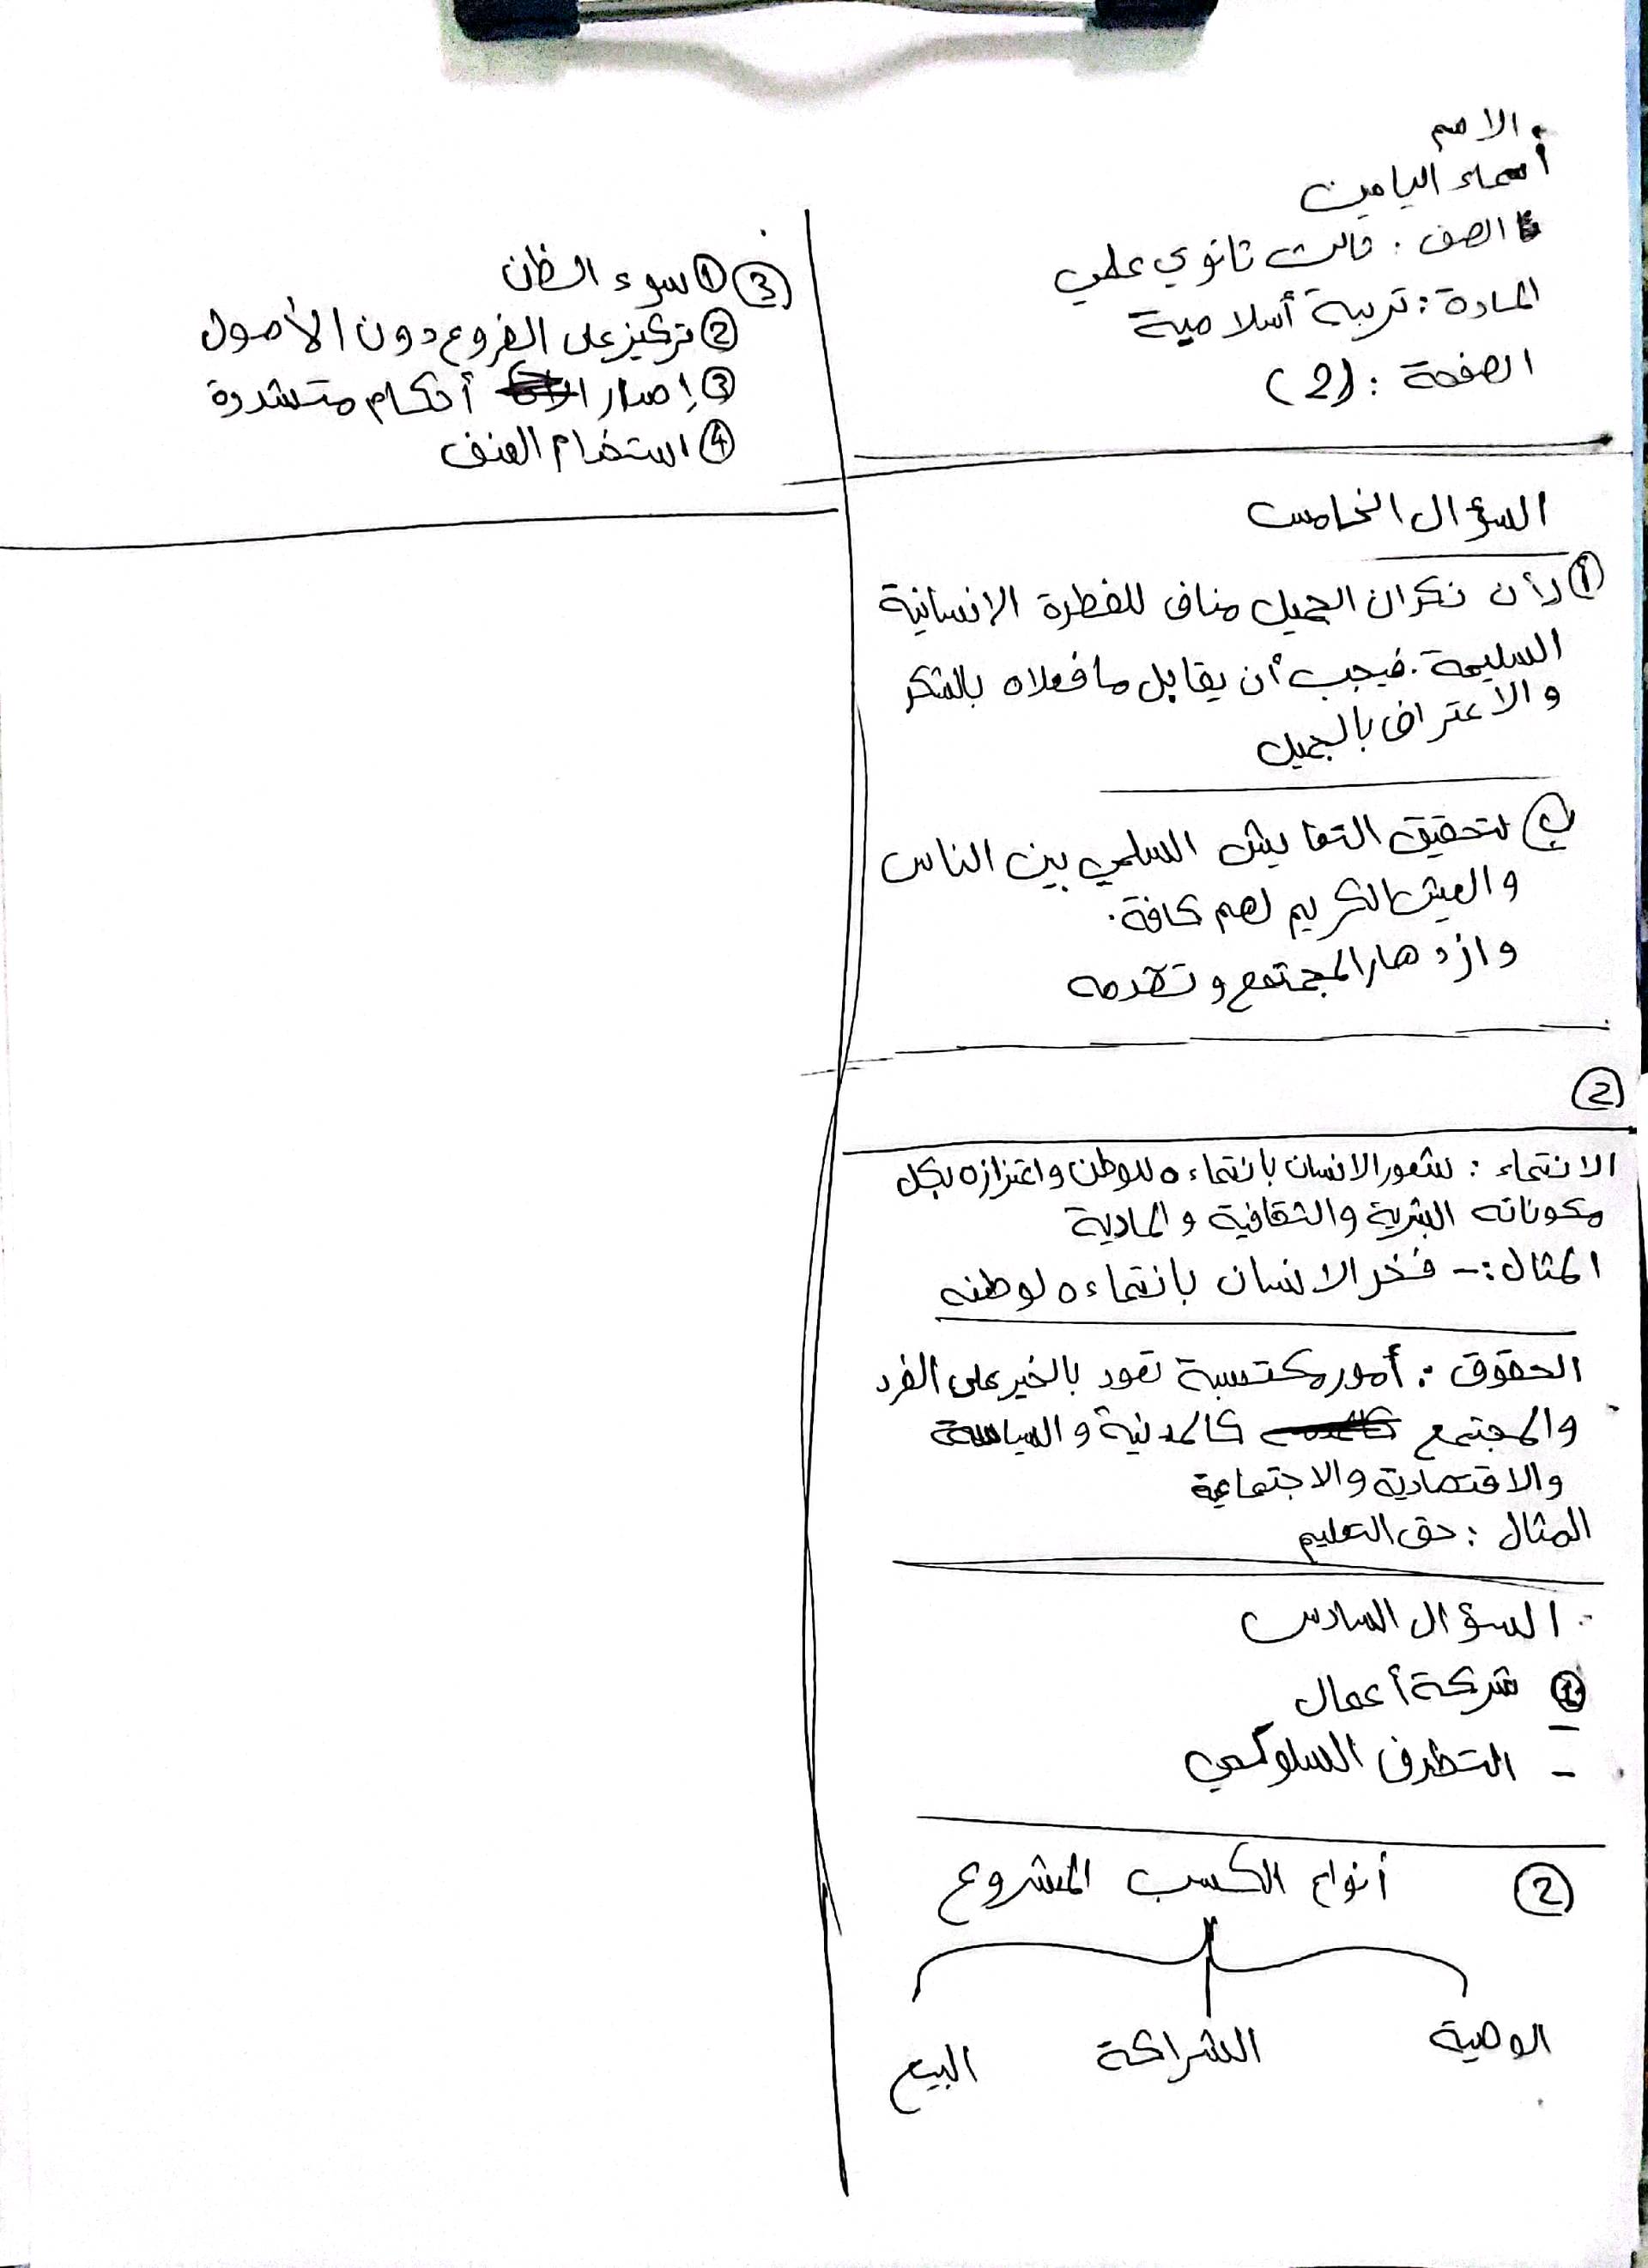 الاسم
أسماء اليامين
الصف : ثالث ثانوي علمي
المادة : تربية أسلامية
الصفحة : (2)
السؤال الخامس
أ لأن نكران الجميل مناف للفطرة الانسانية
السليمة . فيجب أن يقابل ما فعلاه بالشكر
والاعتراف بالجميل
ب لتحقيق التعايش السلمي بين الناس
والعيش الكريم لهم كافة .
وازدهار المجتمع وتقدمه
2
الانتماء : شعور الانسان بانتماءه للوطن واعتزازه بكل
مكوناته البشرية والثقافية والمادية
المثال :- فخر الانسان بانتماءه لوطنه
الحقوق : أمور مكتسبة تعود بالخير على الفرد
والمجتمع كالمدنية والسياسة
والاقتصادية والاجتماعية
المثال : حق التعليم
السؤال السادس
1 شركة أعمال
- التطرف السلوكي
2 أنواع الكسب المشروع
الوصية الشراكة البيع
3 1 سوء الظن
2 تركيز على الفروع دون الأصول
3 إصدار أحكام متشددة
4 استخدام العنف